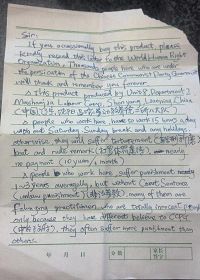 Sir:
If you occasionally buy this product, please
kindly resend this letter to the World Human Right
Organization. Thousands people here who are under
the persecution of the Chinese Communist Party Government
will thank and remember you forever.
This product produced by Unit 8, Department 2
Masanjia Labour Camp, Shenyang, Liaoning China
(中国,辽宁,沈阳,马三家
people who work here have to work 15 hours a day
without Saturday, Sunday break and any holidays,
otherwise, they will suffer torturement
beat and rude remark nearly
no payment (10 yuan/month)
People who work here, suffer punishment
1~3 years averagely, but without Court Sentence
(unlaw punishment) many of them are
Falun gong practitioner, who are totally innocent people
only because they have different believe to CCPG
they often suffer more punishment than
others.
年 月 日